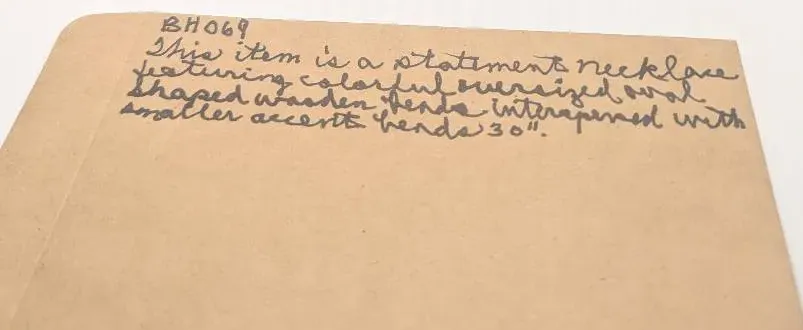 BH069
This item is a statement necklace
featuring colorful oversized oval
shaped wooden beads interspersed with
smaller accent beads 30".